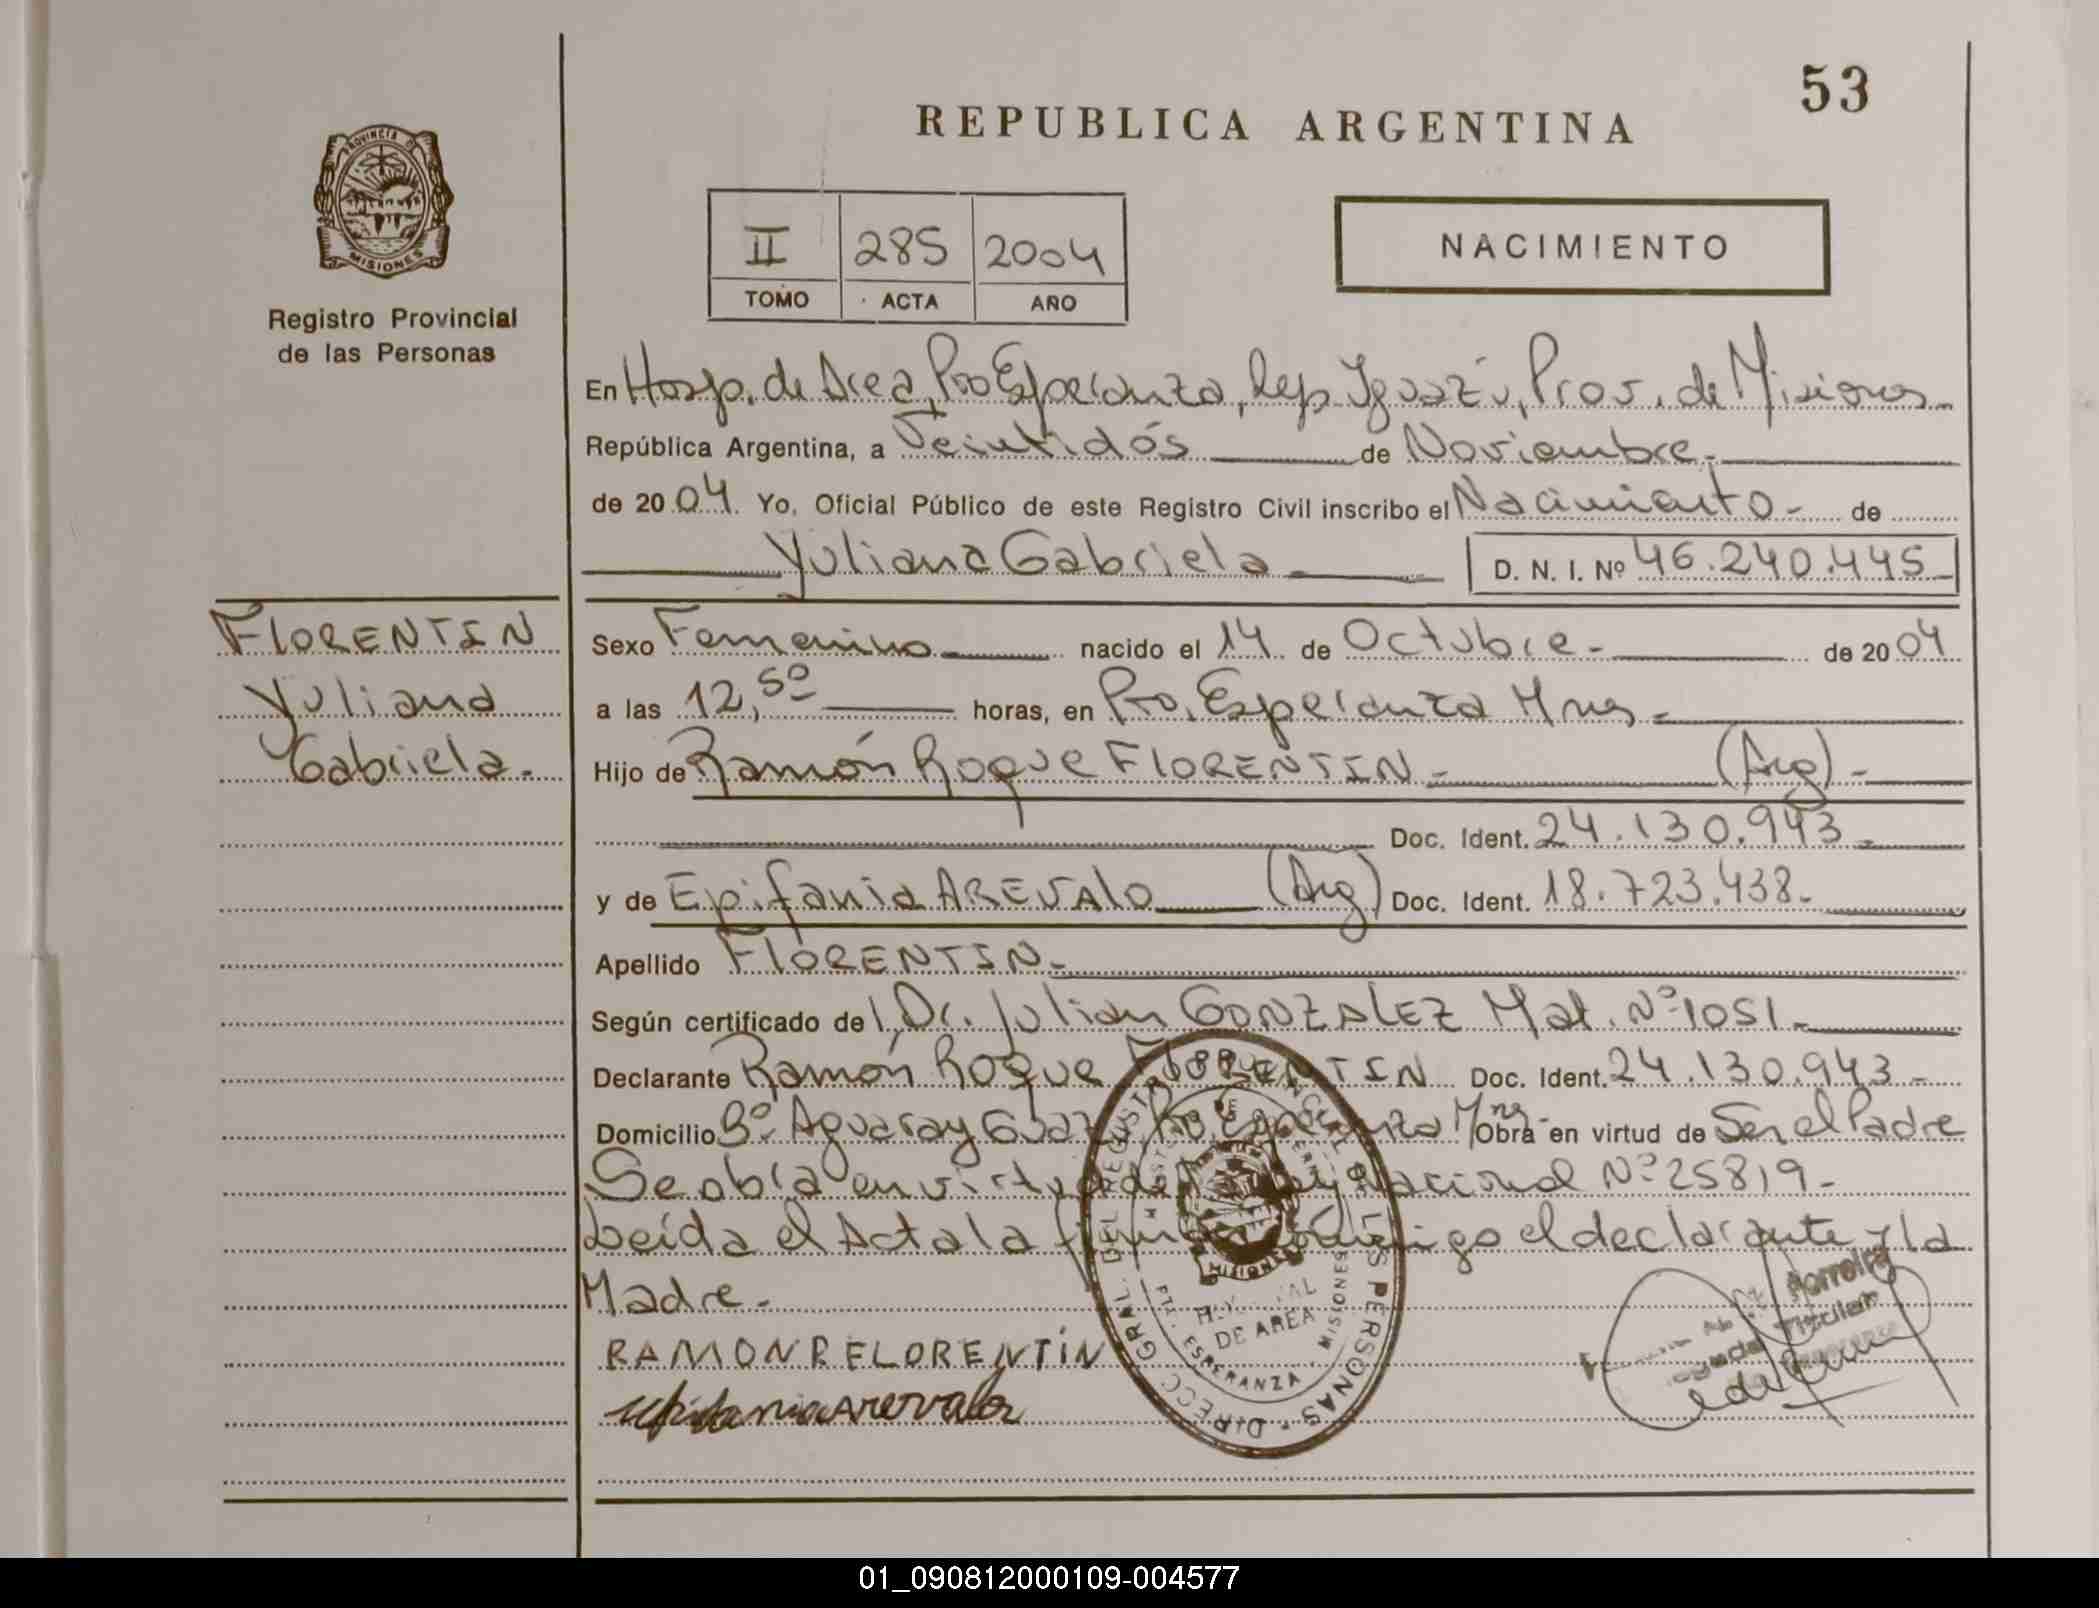 53
REPUBLICA ARGENTINA
PROVINCIA DE
MISIONES
Registro Provincial
de las Personas
II 285 2004
TOMO ACTA AÑO
NACIMIENTO
En Hosp. de Area, Pto Esperanza, Dep. Iguazú, Prov. de Misiones
República Argentina, a Veintidós de Noviembre.
de 2004. Yo, Oficial Público de este Registro Civil inscribo el Nacimiento - de
Yuliana Gabriela D. N. I. Nº 46.240.445
FLORENTIN
Yuliana
Gabriela.
Sexo Femenino nacido el 14 de Octubre - de 2004
a las 12,50 horas, en Pto. Esperanza Mnes -
Hijo de Ramón Roque FLORENTIN - (Arg) -
Doc. Ident. 24.130.943 -
y de Epifania AREVALO (Arg) Doc. Ident. 18.723.438 -
Apellido FLORENTIN -
Según certificado del, Dr. Julian GONZALEZ Mat. Nº 1051 -
Declarante Ramón Roque FLORENTIN Doc. Ident. 24.130.943 -
Domicilio Bº Aguaray Guazú, Pto Esperanza Mnes - Obra en virtud de Ser el Padre
Se obra en virtud de la Ley Nacional Nº 25819 -
Leída el Acta la firman conmigo el declarante y la
Madre -
RAMON R FLORENTÍN
epifania arevalo
DIRECC. GRAL. DEL REGISTRO PROVINCIAL DE LAS PERSONAS
MISIONES
DE AREA
PTO. ESPERANZA - MISIONES
Ferreira
Titular
01_090812000109-004577